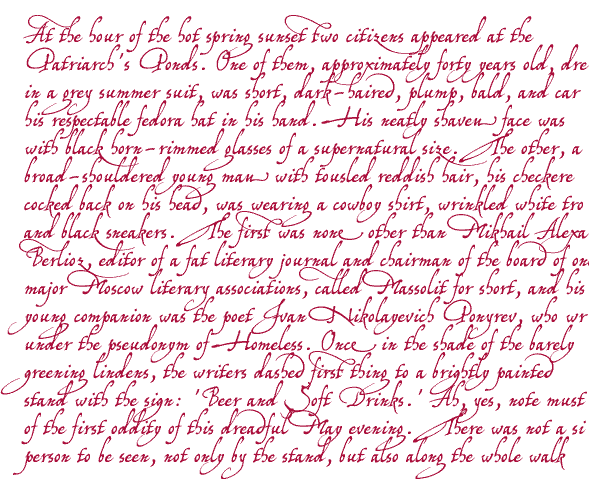 At the hour of the hot spring sunset two citizens appeared at the
Patriarch's Ponds. One of them, approximately forty years old, dre
in a grey summer suit, was short, dark-haired, plump, bald, and car
his respectable fedora hat in his hand. His neatly shaven face was
with black horn-rimmed glasses of a supernatural size. The other, a
broad-shouldered young man with tousled reddish hair, his checkere
cocked back on his head, was wearing a cowboy shirt, wrinkled white tro
and black sneakers. The first was none other than Mikhail Alexa
Berlioz, editor of a fat literary journal and chairman of the board of on
major Moscow literary associations, called Massolit for short, and his
young companion was the poet Ivan Nikolayevich Ponyrev, who wr
under the pseudonym of Homeless. Once in the shade of the barely
greening lindens, the writers dashed first thing to a brightly painted
stand with the sign: 'Beer and Soft Drinks.' Ah, yes, note must
of the first oddity of this dreadful May evening. There was not a si
person to be seen, not only by the stand, but also along the whole walk